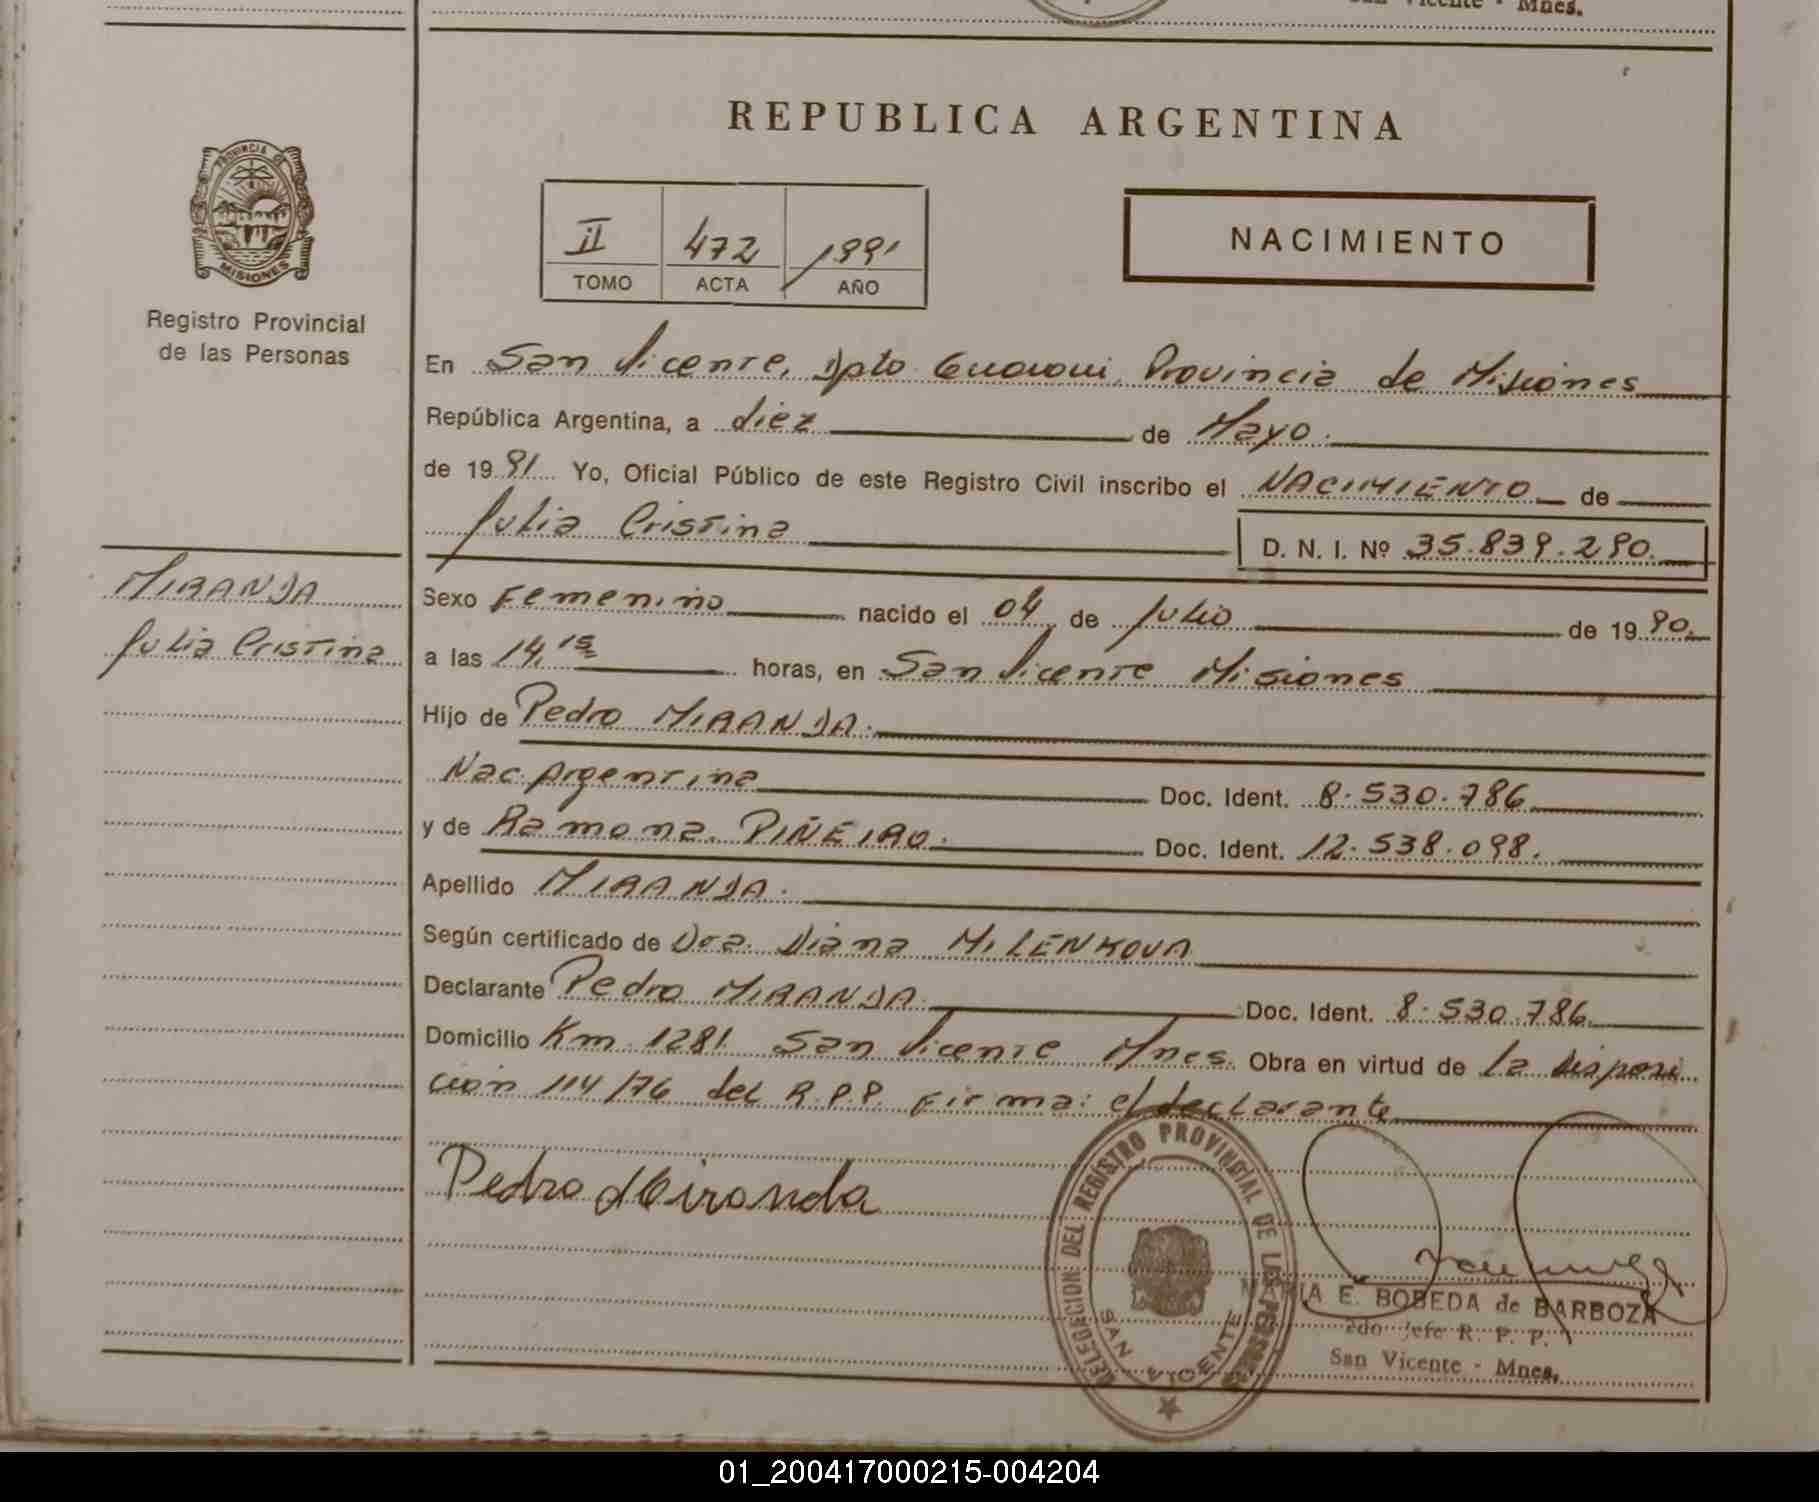 San Vicente - Mnes.
REPUBLICA ARGENTINA
PROVINCIA DE
MISIONES
Registro Provincial
de las Personas
II 472 1991
TOMO ACTA AÑO
NACIMIENTO
En San Vicente, Dpto Guarani, Provincia de Misiones
República Argentina, a diez de Mayo.
de 1991 Yo, Oficial Público de este Registro Civil inscribo el NACIMIENTO de
Julia Cristina D. N. I. Nº 35.839.290.
MIRANDA
Julia Cristina
Sexo Femenino nacido el 04 de Julio de 1990.
a las 14,15 horas, en San Vicente Misiones
Hijo de Pedro MIRANDA.
Nac. Argentina Doc. Ident. 8.530.786
y de Ramona PIÑEIRO. Doc. Ident. 12.538.098.
Apellido MIRANDA.
Según certificado de Dra. Diana MILENKOVA
Declarante Pedro MIRANDA Doc. Ident. 8.530.786
Domicilio Km 1281 San Vicente Mnes. Obra en virtud de la disposi
ción 114/76 del R.P.P. Firma: el declarante
Pedro Miranda
DELEGACION DEL REGISTRO PROVINCIAL DE LAS PERSONAS
SAN VICENTE
MARIA E. BOBEDA de BARBOZA
2do Jefe R. P. P.
San Vicente - Mnes.
01_200417000215-004204